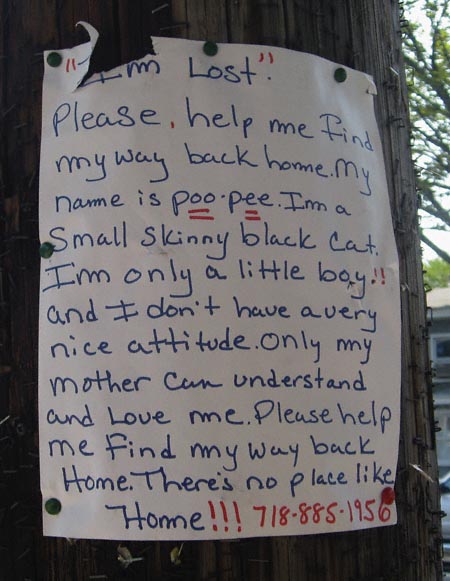 "I'm Lost".
Please, help me find
my way back home. My
name is poo-pee. I'm a
Small skinny black cat.
I'm only a little boy!!
and I don't have a very
nice attitude. Only my
mother can understand
and Love me. Please help
me find my way back
Home. There's no place like
Home!!! 718-885-1956